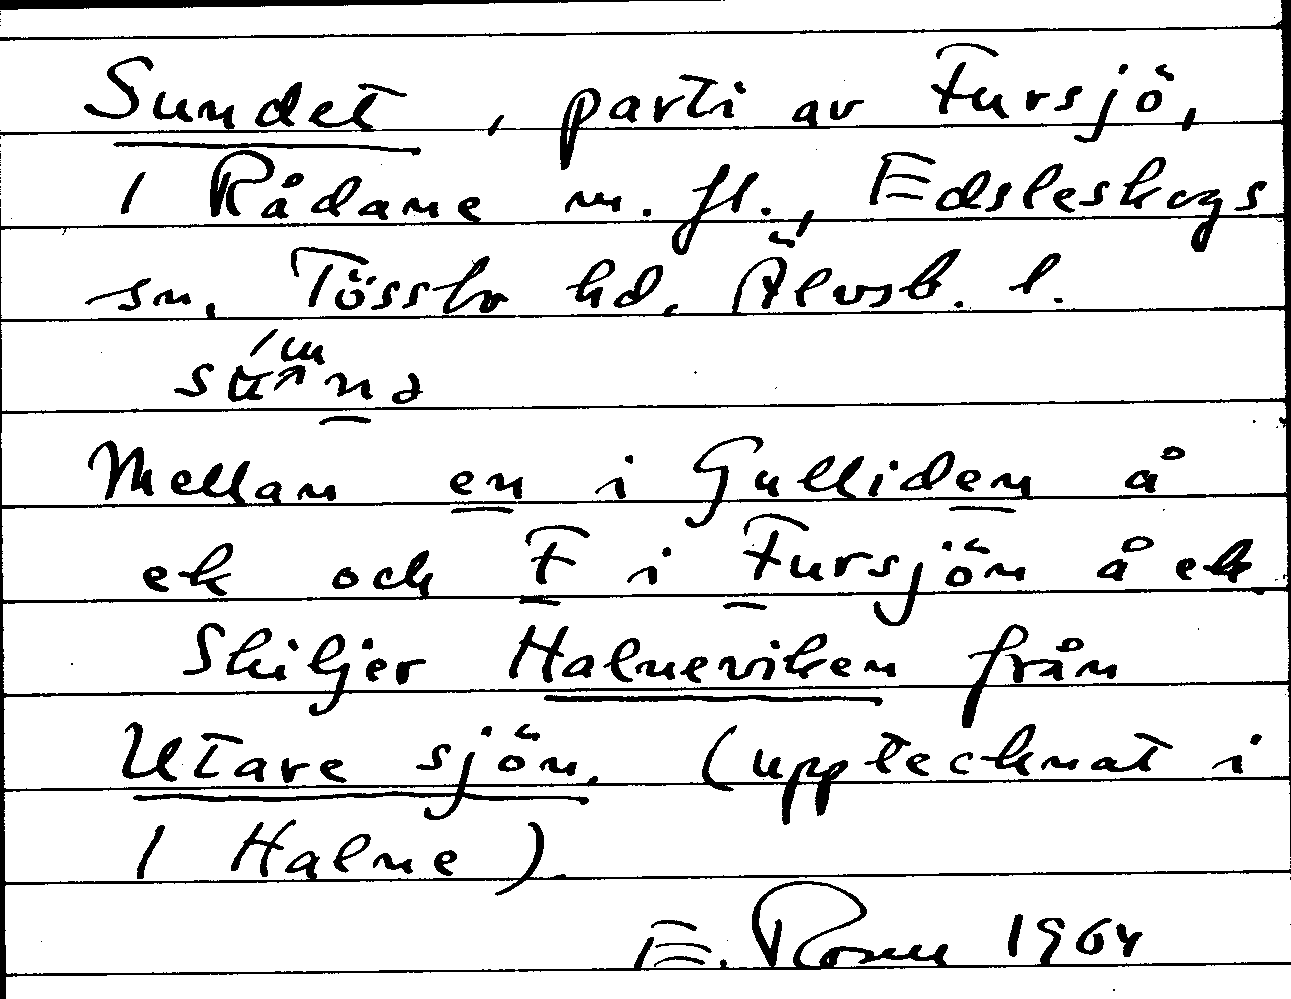 Sundet, parti av Fursjö,
1 Rådane m. fl., Edsleskogs
sn, Tössbo hd. Älvsb. l.
Mellan en i Gulliden å
ek och F i Fursjön å ek
Skiljer Halneviken från
Utare sjön. (upptecknat i
1 Halne).
E. Rosen 1964